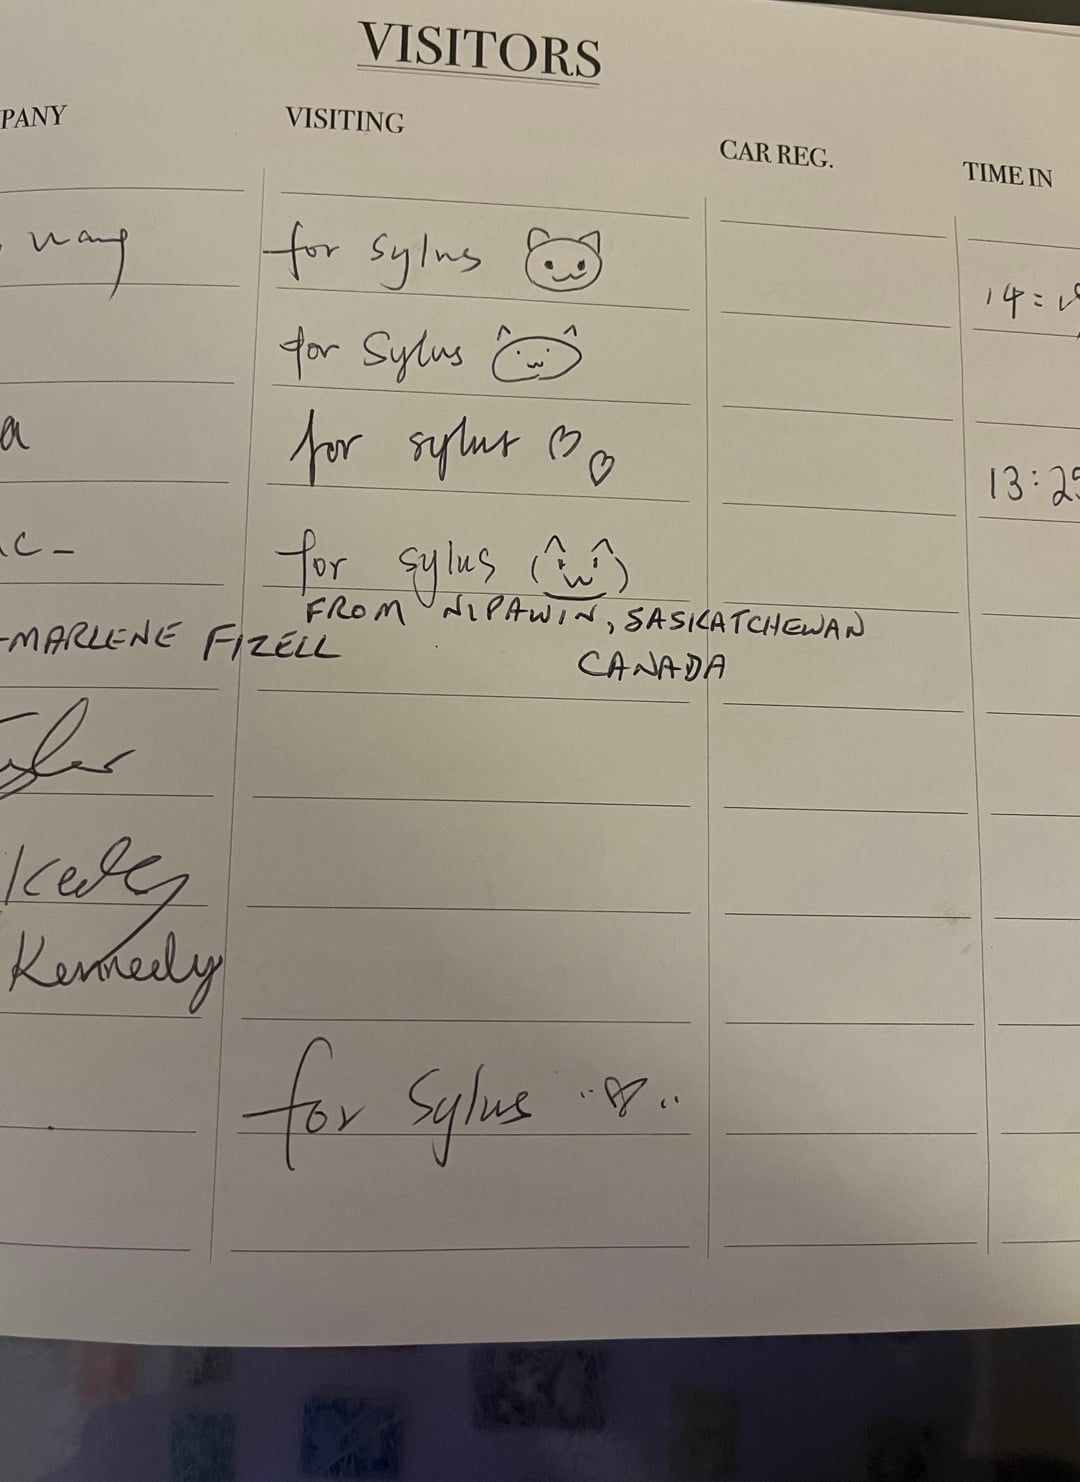 VISITORS
PANY VISITING CAR REG. TIME IN
wang for Sylus
14:
for Sylus
a for sylus ♡♡ 13:25
c- for sylus (^w^)
FROM NIPAWIN, SASKATCHEWAN
-MARLENE FIZELL
CANADA
Kennedy
for Sylus ..♡..